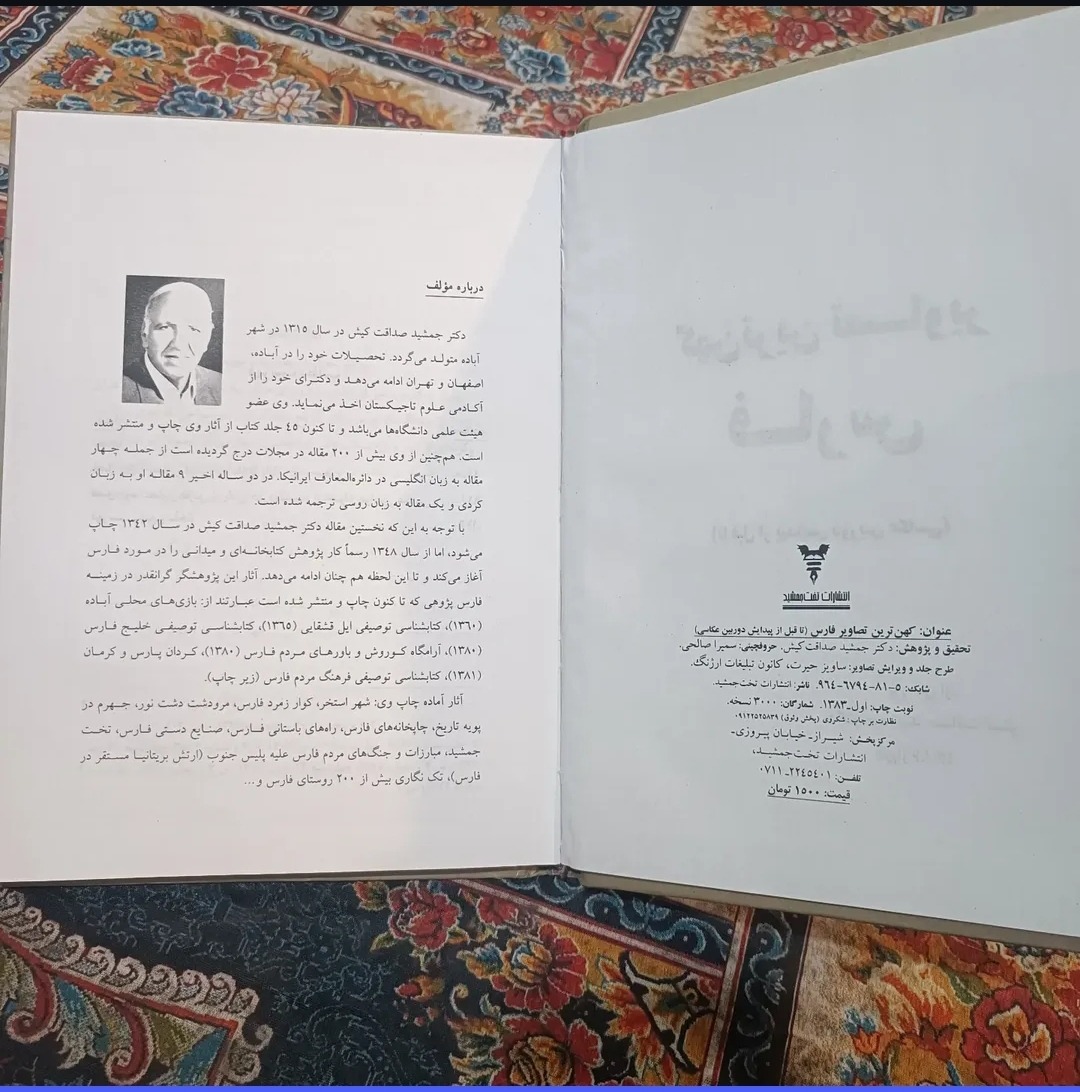 انتشارات تخت‌جمشید
عنوان: کهن‌ترین تصاویر فارس (تا قبل از پیدایش دوربین عکاسی)
تحقیق و پژوهش: دکتر جمشید صداقت‌کیش. حروفچینی: سمیرا صالحی.
طرح جلد و ویرایش تصاویر: ساویز حیرت، کانون تبلیغات ارژنگ.
شابک: ۵-۸۱-۶۷۹۴-۹۶۴. ناشر: انتشارات تخت‌جمشید.
نوبت چاپ: اول-۱۳۸۳. شمارگان: ۳۰۰۰ نسخه.
نظارت بر چاپ: شکردی (پخش وثوق) ۰۹۱۲۲۵۲۵۸۳۹
مرکزپخش: شیراز-خیابان پیروزی-
انتشارات تخت‌جمشید،
تلفن: ۲۲۴۵۴۰۱-۰۷۱۱
قیمت: ۱۵۰۰ تومان
درباره مؤلف
دکتر جمشید صداقت کیش در سال ۱۳۱۵ در شهر
آباده متولد می‌گردد. تحصیلات خود را در آباده،
اصفهان و تهران ادامه می‌دهد و دکترای خود را از
آکادمی علوم تاجیکستان اخذ می‌نماید. وی عضو
هیئت علمی دانشگاه‌ها می‌باشد و تا کنون ۴۵ جلد کتاب از آثار وی چاپ و منتشر شده
است. هم‌چنین از وی بیش از ۲۰۰ مقاله در مجلات درج گردیده است از جمله چهار
مقاله به زبان انگلیسی در دائره‌المعارف ایرانیکا. در دو ساله اخیر ۹ مقاله او به زبان
کردی و یک مقاله به زبان روسی ترجمه شده است.
با توجه به این که نخستین مقاله دکتر جمشید صداقت کیش در سال ۱۳۴۲ چاپ
می‌شود، اما از سال ۱۳۴۸ رسماً کار پژوهش کتابخانه‌ای و میدانی را در مورد فارس
آغاز می‌کند و تا این لحظه هم چنان ادامه می‌دهد. آثار این پژوهشگر گرانقدر در زمینه
فارس پژوهی که تا کنون چاپ و منتشر شده است عبارتند از: بازی‌های محلی آباده
(۱۳۶۰)، کتابشناسی توصیفی ایل قشقایی (۱۳۶۵)، کتابشناسی توصیفی خلیج فارس
(۱۳۸۰)، آرامگاه کوروش و باورهای مردم فارس (۱۳۸۰)، کردان پارس و کرمان
(۱۳۸۱)، کتابشناسی توصیفی فرهنگ مردم فارس (زیر چاپ).
آثار آماده چاپ وی: شهر استخر، کوار زمرد فارس، مرودشت دشت نور، جهرم در
پویه تاریخ، چاپخانه‌های فارس، راه‌های باستانی فارس، صنایع دستی فارس، تخت
جمشید، مبارزات و جنگ‌های مردم فارس علیه پلیس جنوب (ارتش بریتانیا مستقر در
فارس)، تک نگاری بیش از ۲۰۰ روستای فارس و...